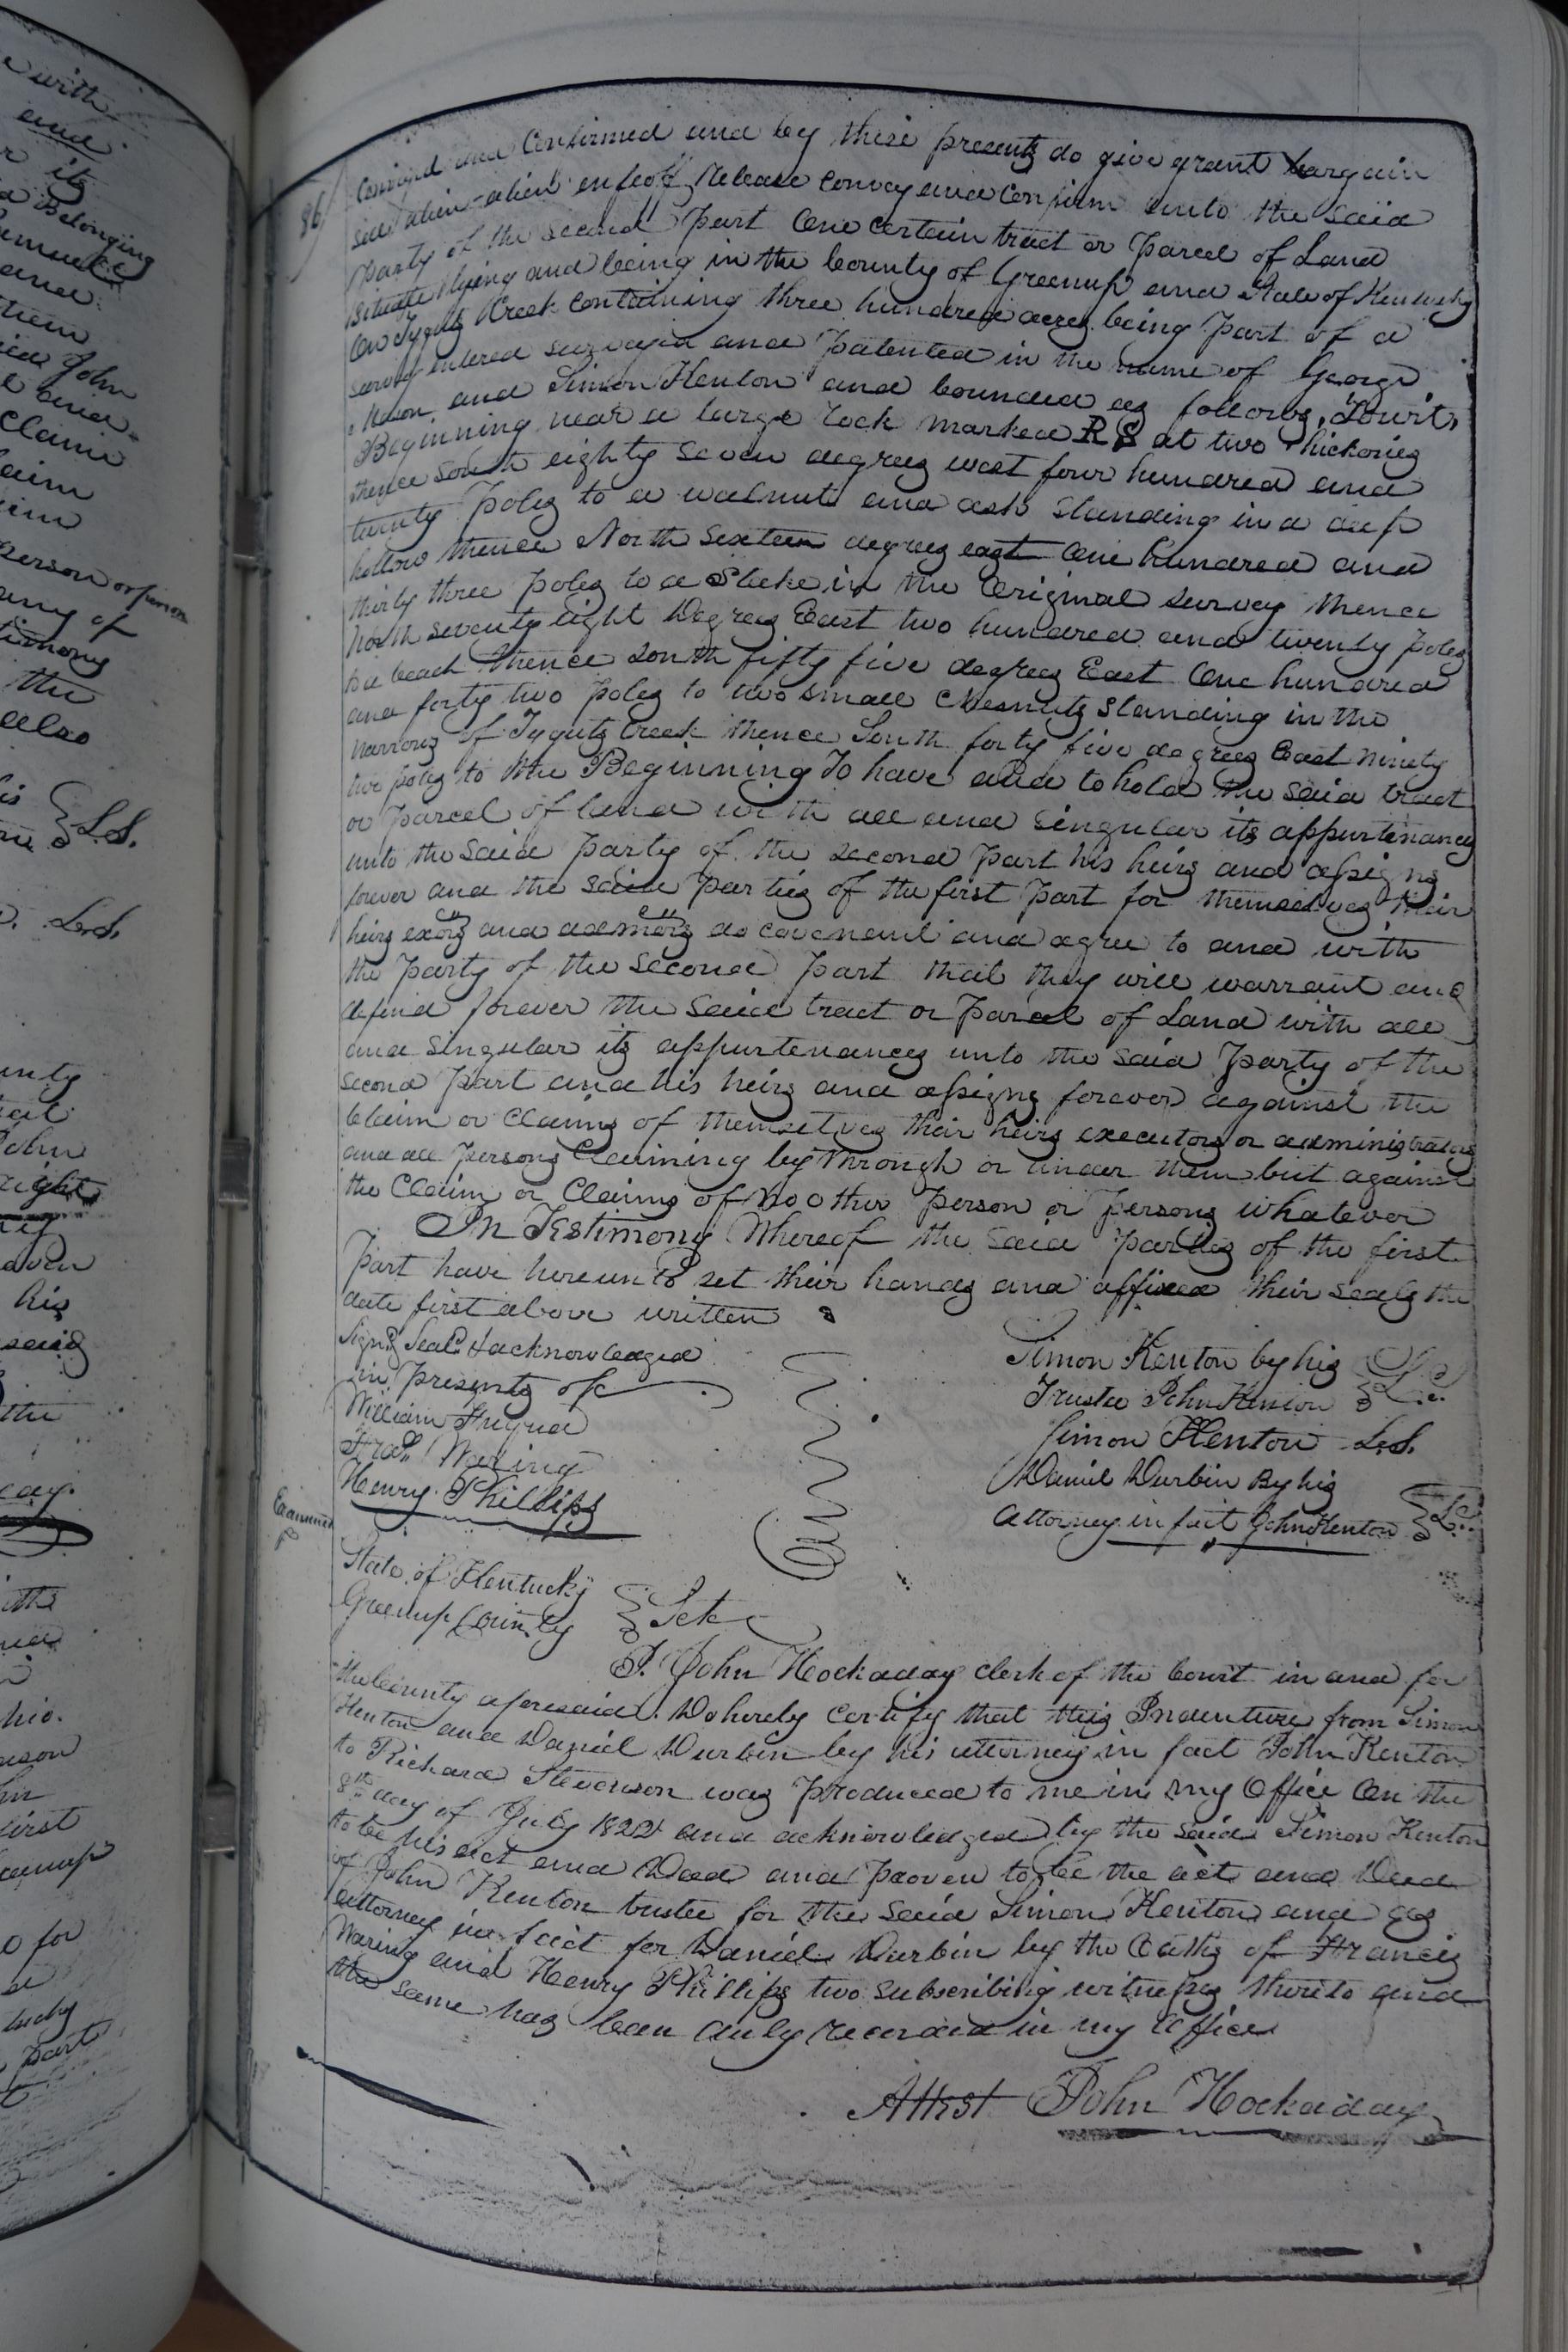 86
Conveyed and Confirmed and by these presents do give grant bargain
sell alien enfeoff Release convey and confirm unto the said
party of the second part One certain tract or Parcel of Land
Situate lying and being in the County of Greenup and State of Kentucky
On Tygerts Creek containing three hundred acres being part of a
survey entered surveyed and patented in the name of George
Mason and Simon Kenton and bounded as follows, Towit,
Beginning near a large rock marked R S at two hickories
thence South eighty seven degrees west four hundred and
twenty poles to a walnut and ash standing in a deep
hollow thence North sixteen degrees east One hundred and
thirty three poles to a Stake in the Original survey thence
North seventy eight Degrees East two hundred and twenty poles
to a beach thence South fifty five degrees East One hundred
and forty two poles to two small Chesnuts standing in the
narrows of Tyguts Creek thence South forty five degrees East Ninety
two poles to the Beginning To have and to hold the said tract
or parcel of land with all and singular its appurtenances
unto the said party of the second part his heirs and assigns
forever and the said parties of the first part for themselves their
heirs exors and admors do covenant and agree to and with
the party of the second part that they will warrant and
defend forever the said tract or Parcel of Land with all
and singular its appurtenances unto the said party of the
second part and his heirs and assigns forever against the
claim or claims of themselves their heirs executors or administrators
and all persons Claiming by through or under them but against
the Claim or Claims of no other person or persons whatever
In Testimony Whereof the said parties of the first
part have hereunto set their hands and affixed their seals the
date first above written
Signd Seald & acknowledged
in presents of
William Fuqua
Fras Waring
Henry Phillips
Simon Kenton by his
Trustee John Kenton L.S.
Simon Kenton L.S.
Daniel Durbin By his
Attorney in fact John Kenton L.S.
Examined
State of Kentucky
Greenup County Sct
I. John Hockaday clerk of the Court in and for
the County aforesaid Do hereby certify that this Indenture from Simon
Kenton and Daniel Durbin by his attorney in fact John Kenton
to Richard Stevenson was produced to me in my Office On the
8th day of July 1822 and acknowledged by the said Simon Kenton
to be his act and Deed and proven to be the act and Deed
of John Kenton trustee for the said Simon Kenton and as
attorney in fact for Daniel Durbin by the Oaths of Francis
Waring and Henry Phillips two subscribing witnesses thereto and
the same has been duly recorded in my Office
Attest John Hockaday